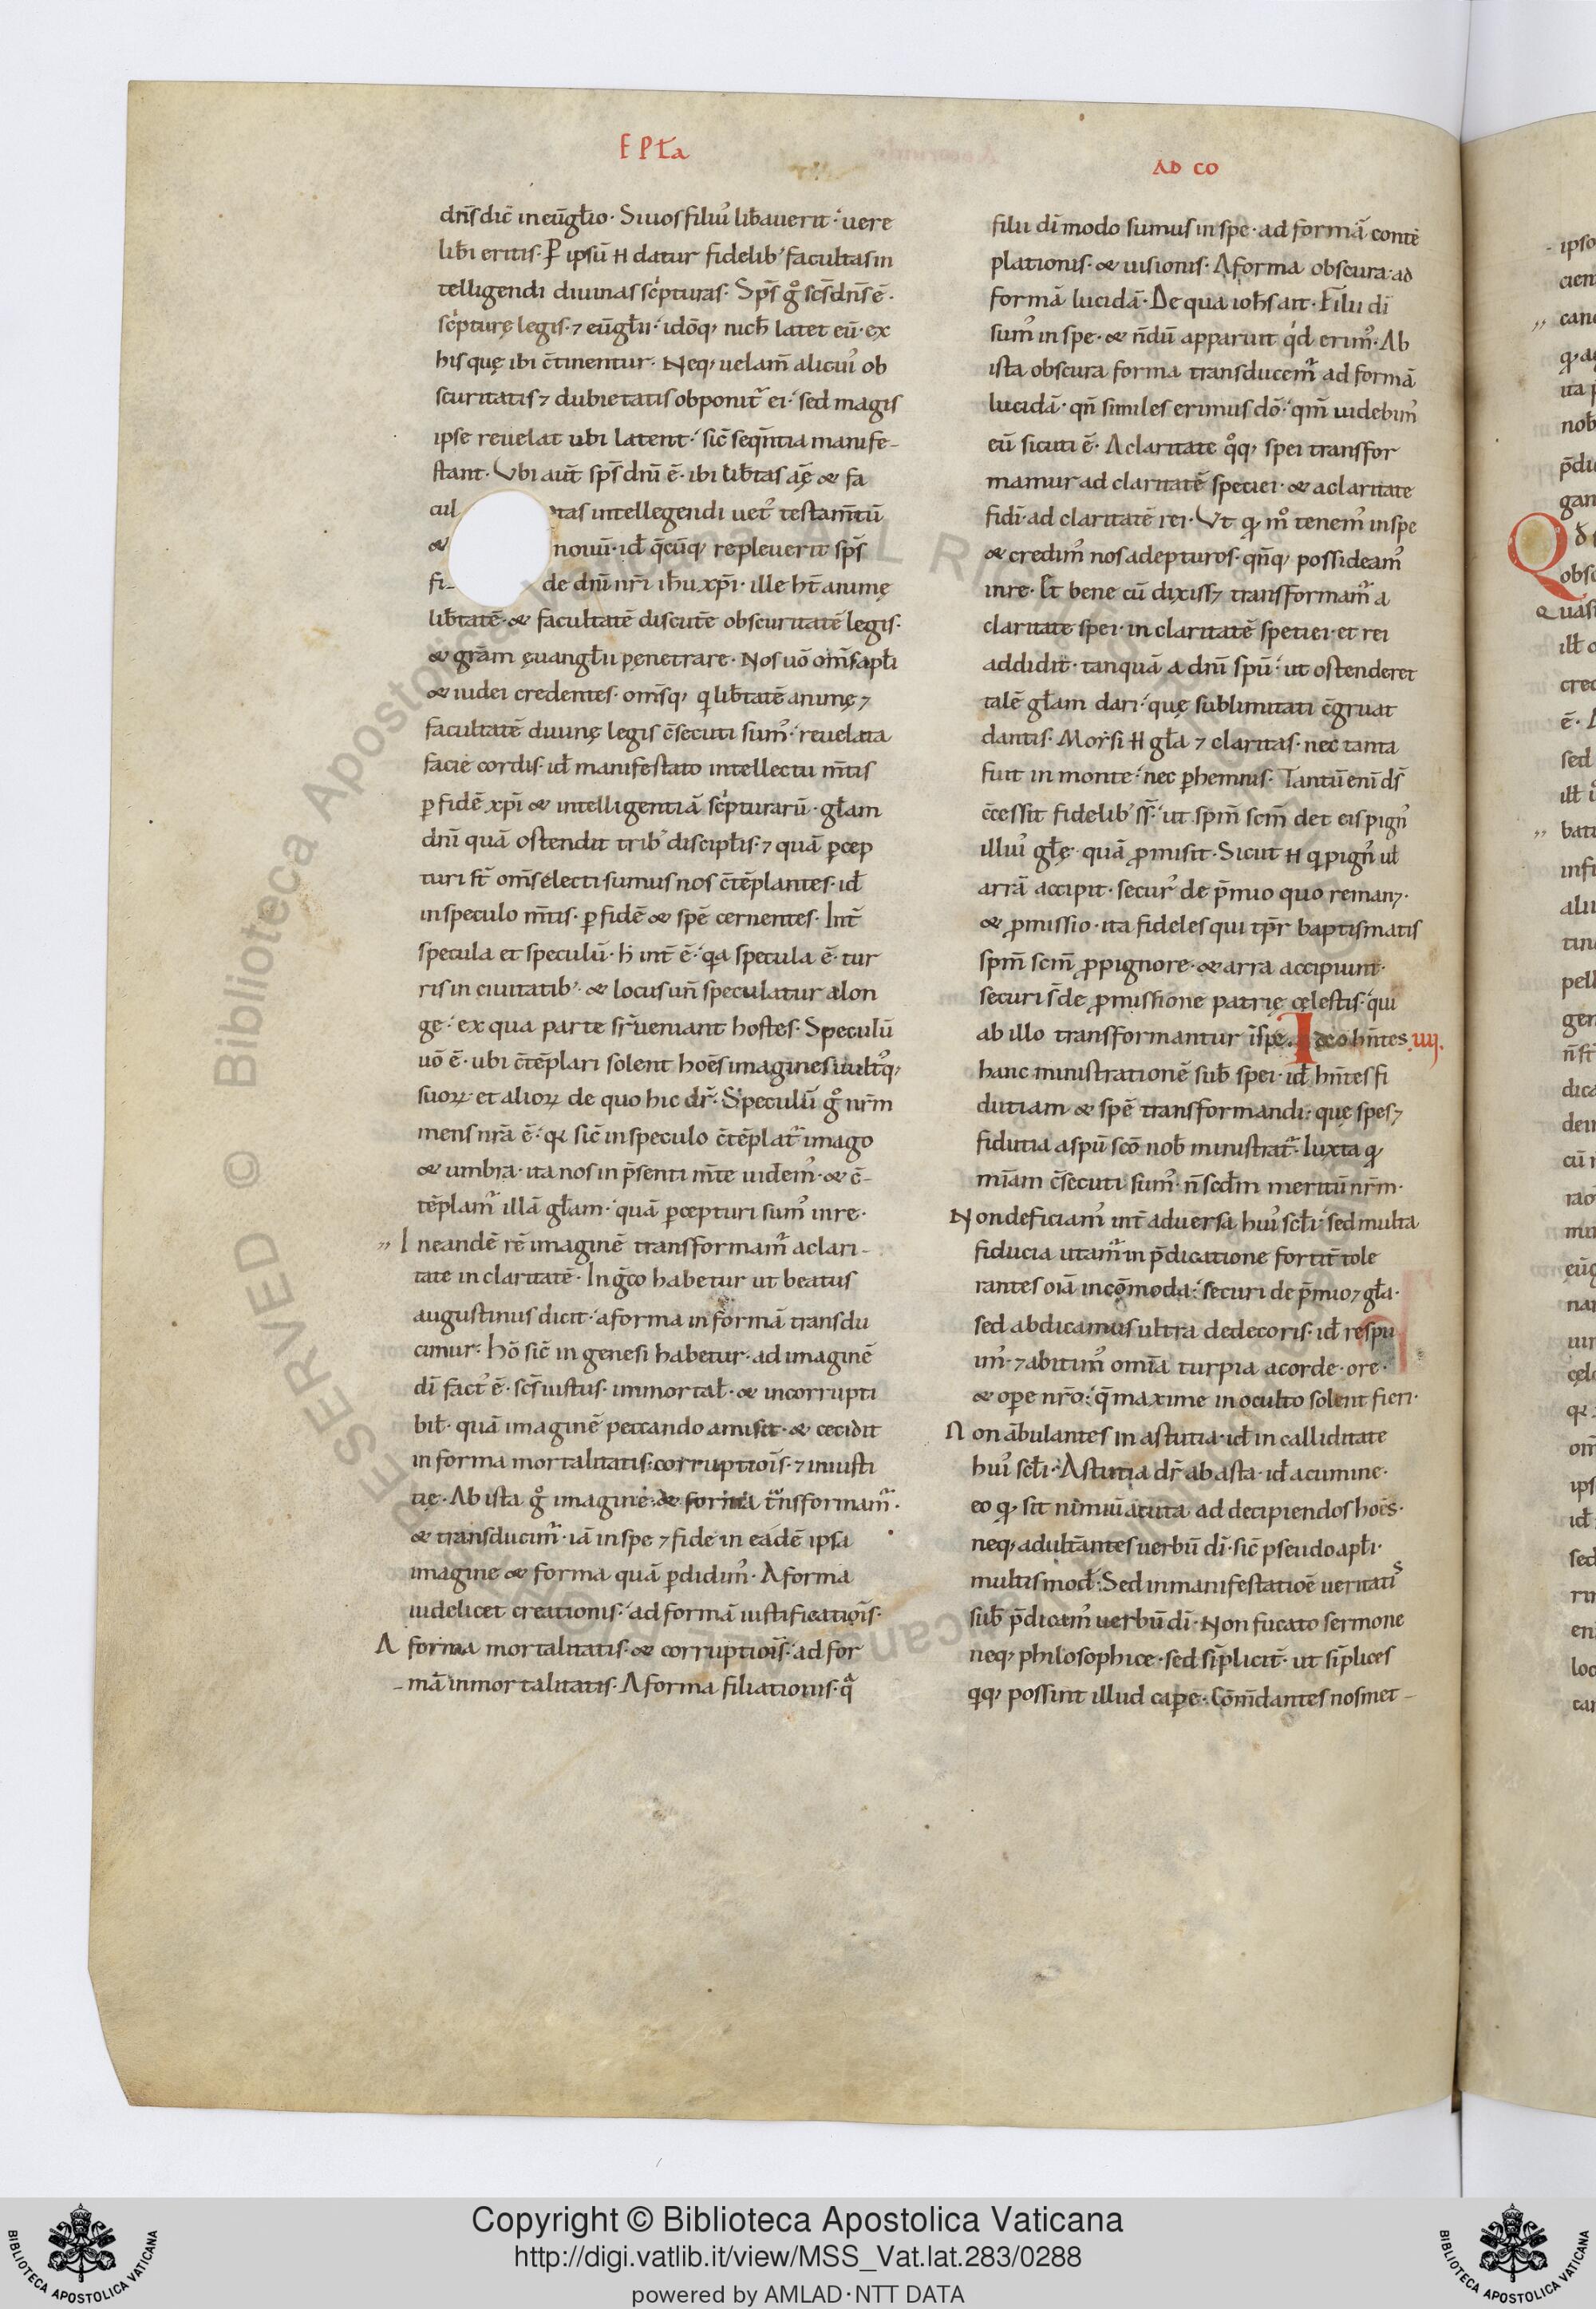 EPƚa
dn̄s dic̄ in eūgƚio· Si uos filiuꝰ lib̄auerit· uere
lib̄i eritis· P̲ ipsū H datur fidelibꝰ facultas in
telligendi diuinas sc̍pturas· Sp̄s gͦ sc̄s dn̄s ē·
sc̍pturę legis· ⁊ eūgƚii· idōq; nich̄ latet eū· ex
his quę ibi c̄tinentur· Neq; uelam̄ alicuiꝰ ob
scuritatis ⁊ dubietatis obponit᷑ ei· sed magis
ipse reuelat ubi latent· sic̄ seq̄ntia manife-
stant· Vbi aut̄ sp̄s dn̄i ē· ibi lib̄tas aīę & fa
cul tas intellegendi uetꝰ testam̄tū
& nouū· id̄ q̄cūq; repleuerit sp̄s
fi- de dn̄i nr̄i ih̄u xp̄i· ille ht̄ animę
lib̄tatē· & facultatē discutē obscuritatē legis·
& grām ęuangƚii penetrare· Nos uō om̄s apƚi
& iudei credentes· om̄sq; q̍ lib̄tatē animę ⁊
facultatē diuinę legis c̄secuti sumꝰ· reuelata
facie cordis· id̄ manifestato intellectu m̄tis
ꝑ fidē xp̄i & intelligentiā sc̍pturarū· gƚam
dn̄i quā ostendit tribꝰ discipƚis· ⁊ quā ꝑcep
turi st̄ om̄s electi sumus nos c̄tēplantes· id̄
in speculo m̄tis· ꝑ fidē & spē cernentes· Int̄
specula et speculū· h̄ int̄ ē· q̍a specula ē· tur
ris in ciuitatibꝰ· & locus un̄ speculatur a lon
ge· ex qua parte sr̄ ueniant hostes· Speculū
uō ē· ubi c̄tēplari solent hoēs imagines uultꝰq;
suoꝝ· et alioꝝ de quo hic dr̄· Speculū gͦ nr̄m
mens nr̄a ē· qꝛ sic̄ in speculo c̄tēplat᷑ imago
& umbra· ita nos in p̄senti m̄te uidemꝰ· & c̄-
tēplam᷑ illā gƚam· quā ꝑcepturi sumꝰ in re·
„ I neandē rē imaginē transformam᷑ a clari-
tate in claritatē· In g̍co habetur ut beatus
augustinus dicit· a forma in formā transdu
cimur· Hō sic̄ in genesi habetur· ad imaginē
dī factꝰ ē· sc̄s iustus· immortaƚ· & incorrupti
biƚ· quā imaginē peccando amisit· & cecidit
in forma mortalitatis· corruptiōis· ⁊ iniusti
tię· Ab ista gͦ imagine· & forma tͣnsformam᷑·
& transducim᷑· iā in spe ⁊ fide in eadē ipsa
imagine & forma quā ꝑdidimꝰ· A forma
uidelicet creationis· ad formā iustificatiōis·
A forma mortalitatis· & corruptiōis· ad for
mā inmortalitatis· A forma filiationis· qͣ
AD CO
filii dī modo sumus in spe· ad formā contē
plationis· & uisionis· A forma obscura· ad
formā lucidā· De qua ioh̄s ait· Filii dī
sumꝰ in spe· & n̄dū apparuit q̍d erimꝰ· Ab
ista obscura forma transducem᷑ ad formā
lucidā· qn̄ similes erimus dō· qm̄ uidebimꝰ
eū sicuti ē· A claritate qͦq; spei transfor
mamur ad claritatē speciei· & a claritate
fidī ad claritatē rei· Vt q̣ mͦ tenemꝰ in spe
& credimꝰ nos adepturos· qn̄q; possideamꝰ
in re· Et bene cū dixiss⁊ transformam᷑ a
claritate spei· in claritatē spetiei· et rei
addidit· tanquā a dn̄i spū· ut ostenderet
talē gƚam dari· quę sublimitati c̄gruat
dantis· Morsi H gƚa ⁊ claritas· nec tanta
fuit in monte· nec ꝑhennis· Tantū enī ds̄
c̄cessit fidelibꝰ ss̄· ut spm̄ scm̄ det eis pignꝰ
illiuꝰ gƚę· quā ꝓmisit· Sicut H q̍ pignꝰ uƚ
arrā accipit· securꝰ de p̄mio quo reman⁊·
& ꝓmissio· ita fideles qui tp̄r baptismatis
spm̄ scm̄ ꝓ pignore· & arra accipiunt·
securi s̄ de ꝓmissione patrię cęlestis· qui
ab illo transformantur ī spe. Ideo hn̄tes .IIII.
hanc ministrationē sub̄ spei· id̄ hn̄tes fi
dutiam & spē transformandi· quę spes ⁊
fidutia a spū scō nob̄ ministrat᷑· Iuxta q̣
mīam c̄secuti sumꝰ· n̄ sedm̄ meritū nr̄m·
Non deficiamꝰ int̄ aduersa huiꝰ scƚi· sed multa
fiducia utam᷑ in p̄dicatione fortit̄ tole
rantes oīa incōmoda· securi de p̄mio ⁊ gƚa·
sed abdicamus ultra dedecoris· id̄ respu
imꝰ ⁊ abitimꝰ omīa turpia a corde· ore·
& oꝑe nr̄o· q̄ maxime in oculto solent fieri·
Non ābulantes in astutia· id̄ in calliditate
huiꝰ scƚi· Astutia dr̄ ab asta· id̄ acumine·
eo q̣ sit nimiū acuta ad decipiendos hoēs·
neq; adult̄antes uerbū dī· sic̄ pseudoapƚi·
multis mod̄· Sed in manifestatiōe ueritatis
sub̄ p̄dicamꝰ uerbū dī· Non fucato sermone
neq; philosophice· sed sīplicit̄· ut sīplices
q̍q; possint illud caꝑe· Cōm̄dantes nosmet-
Copyright © Biblioteca Apostolica Vaticana
http://digi.vatlib.it/view/MSS_Vat.lat.283/0288
powered by AMLAD·NTT DATA